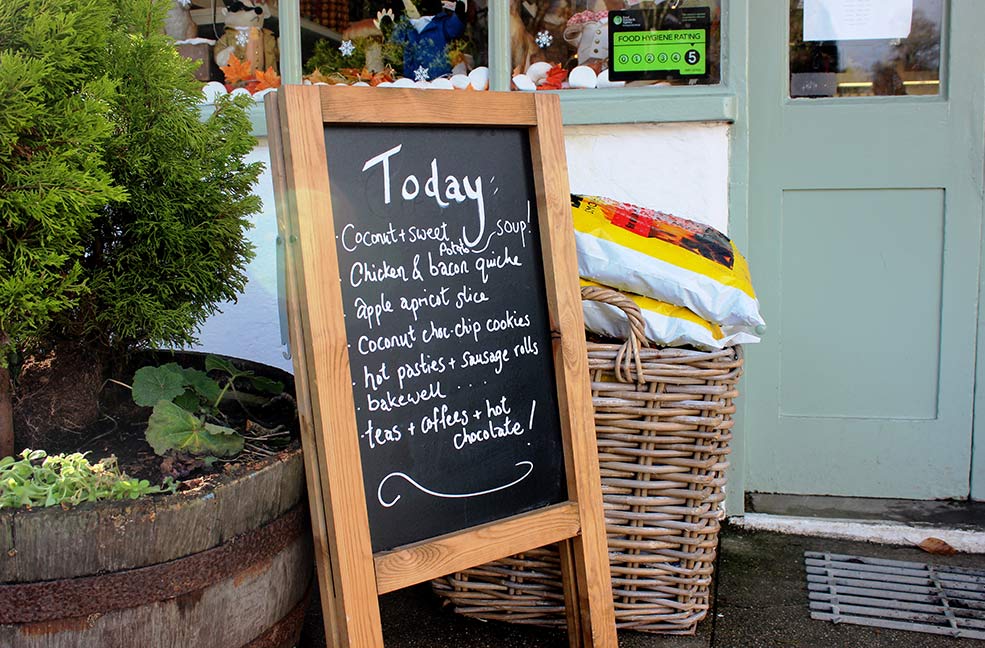 FOOD HYGIENE RATING
0 1 2 3 4 5
Today
· Coconut + sweet Potato soup!
· Chicken & bacon quiche
· apple apricot slice
· Coconut choc-chip cookies
· hot pasties + sausage rolls
· bakewell ...
· teas + coffees + hot
chocolate!